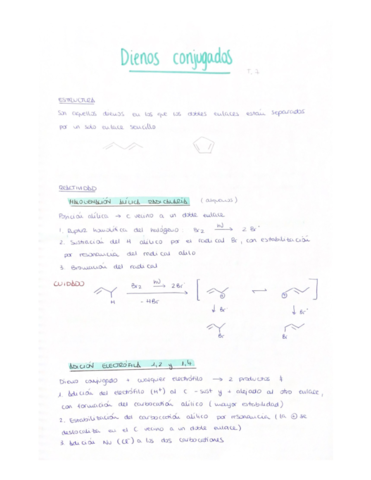 Dienos conjugados
1,4
ESTRUCTURA
Son aquellos dienos en los que los dobles enlaces están separados
por un solo enlace sencillo
REACTIVIDAD
HALOGENACIÓN ALÍLICA RADICALARIA
Posición alílica → C vecino a un doble enlace
1. Ruptura homolítica del halógeno Br₂ hν → 2 Br·
2. Sustracción del H alílico por el radical Br·, con estabilización
por resonancia del radical alilo
3. Bromación del radical
CUIDADO
H
Br₂ hν → 2Br·
- HBr
↔
↓ Br· ↓ Br·
Br Br
ADICIÓN ELECTRÓFILA 1,2 y 1,4
Dieno conjugado + cualquier electrófilo → 2 productos
1. Adición del electrófilo (H⁺) al C más alejado al otro enlace,
con formación del carbocatión alílico (mayor estabilidad)
2. Estabilización del carbocatión alílico por resonancia (la ⊕ se
deslocaliza en el C vecino a un doble enlace)
3. Adición Nu (Cl⁻) a los dos carbocationes